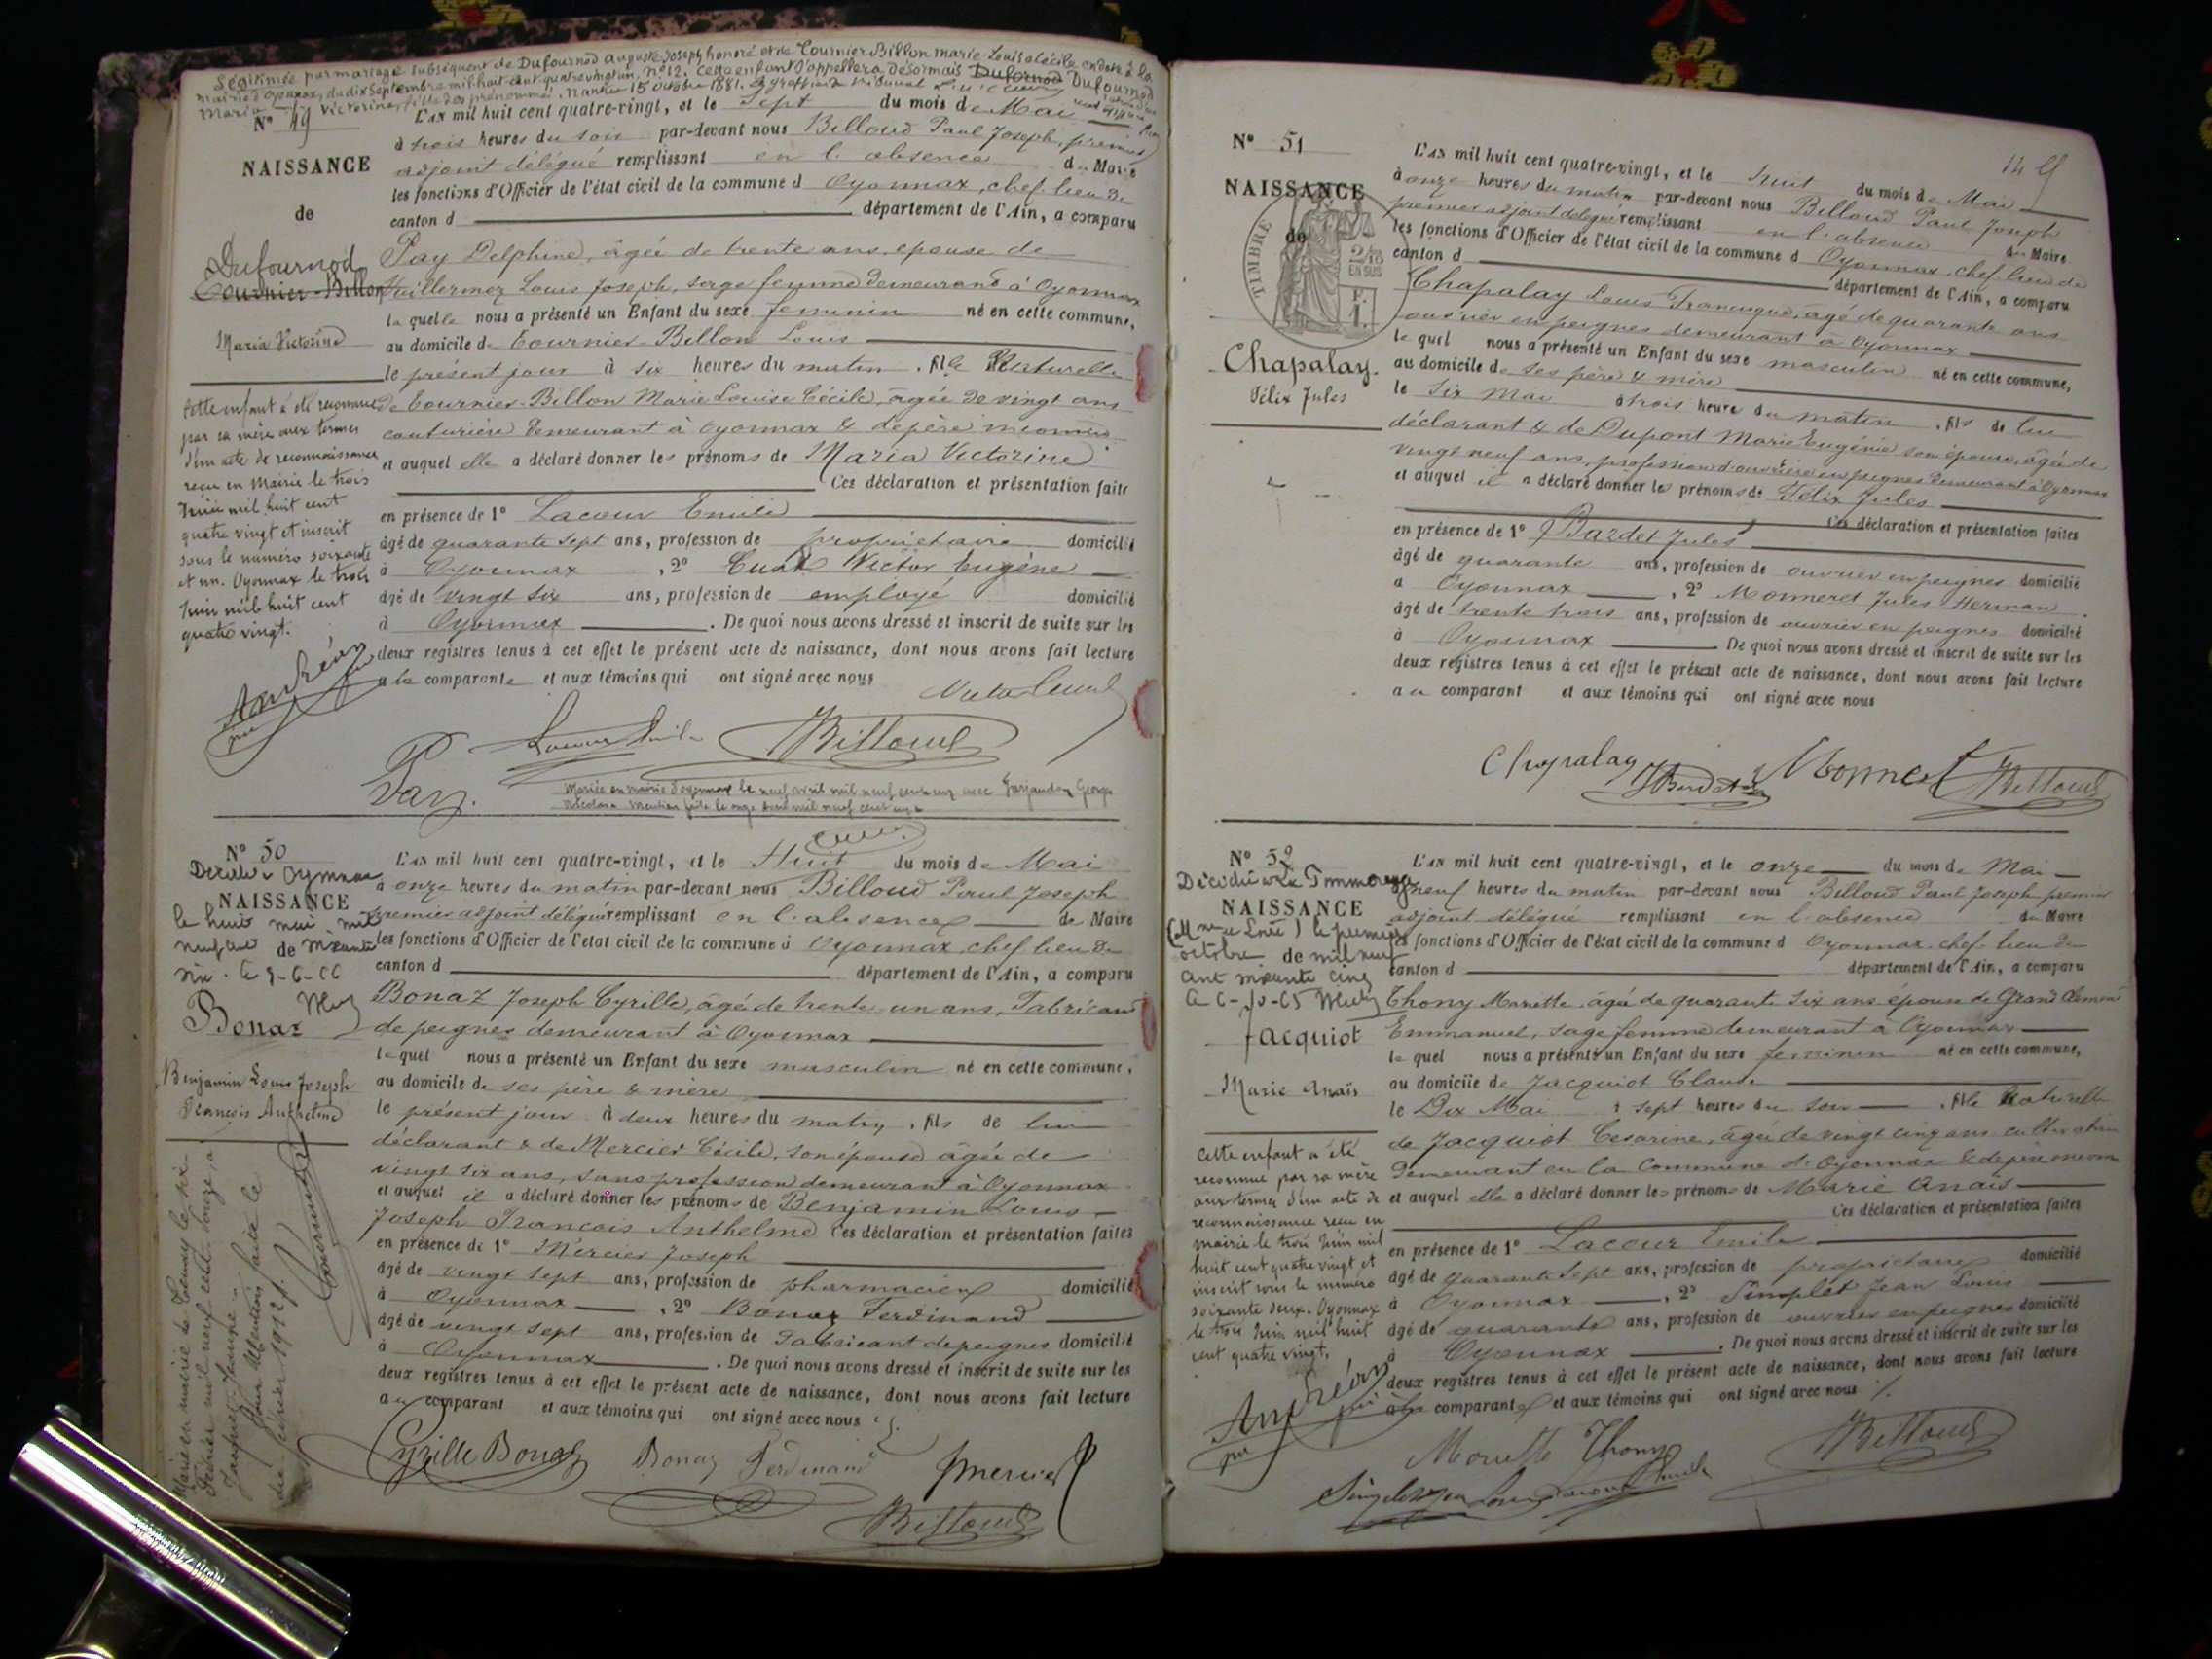 Légitimée par mariage subséquent de Dufournod Auguste Joseph honoré et de Tournier Billon marie Louise Cécile en date à la
mairie d'Oyonnax, du dix Septembre mil huit cent quatre vingt un, N° 12. Cette enfant s'appellera désormais Dufornod Dufournod
Maria Victorine, fille des prénommés. Nantua 15 octobre 1881.
N° 49
NAISSANCE
de
Dufournod
Tournier-Billon
Maria Victorine
L'AN mil huit cent quatre-vingt, et le Sept du mois de Mai
à trois heures du soir par-devant nous Billoud Paul Joseph, premier
adjoint délégué remplissant en l'absence du Maire
les fonctions d'Officier de l'état civil de la commune d Oyonnax, chef lieu de
canton d département de l'Ain, a comparu
Pay Delphine, âgée de trente ans, épouse de
Vuillermoz Louis Joseph, sage femme demeurant à Oyonnax
laquelle nous a présenté un Enfant du sexe feminin né en cette commune,
au domicile de Tournier-Billon Louis
le présent jour à six heures du matin, fille Naturelle
de Tournier-Billon Marie Louise Cécile, âgée de vingt ans
couturière demeurant à Oyonnax & de père inconnu
et auquel elle a déclaré donner les prénoms de Maria Victorine
Ces déclaration et présentation faite
en présence de 1° Lacour Emile
âgé de quarante sept ans, profession de propriétaire domicilié
à Oyonnax, 2° Victor Eugène
âgé de vingt six ans, profession de employé domicilié
à Oyonnax. De quoi nous avons dressé et inscrit de suite sur les
deux registres tenus à cet effet le présent acte de naissance, dont nous avons fait lecture
à la comparante et aux témoins qui ont signé avec nous
Cette enfant a été reconnue
par sa mère aux termes
d'un acte de reconnaissance
reçu en Mairie le trois
Juin mil huit cent
quatre vingt et inscrit
sous le numéro soixante
et un. Oyonnax le trois
Juin mil huit cent
quatre vingt.
Pay
Billoud
Mariée en mairie d'Oyonnax le neuf avril mil neuf cent un avec Georges
Nicolas. Mention faite le onze avril mil neuf cent un
N° 50
Décédé à Oyonnax
NAISSANCE
le huit mai mil
neuf cent de soixante
six. Le 9-6-66
Bonaz
Benjamin Louis Joseph
François Anthelme
L'AN mil huit cent quatre-vingt, et le Huit du mois de Mai
à onze heures du matin par-devant nous Billoud Paul Joseph
premier adjoint délégué remplissant en l'absence de Maire
les fonctions d'Officier de l'état civil de la commune d Oyonnax, chef lieu de
canton d département de l'Ain, a comparu
Bonaz Joseph Cyrille, âgé de trente un ans, Fabricant
de peignes demeurant à Oyonnax
lequel nous a présenté un Enfant du sexe masculin né en cette commune,
au domicile de ses père & mère
le présent jour à deux heures du matin, fils de lui
déclarant & de Mercier Cécile, son épouse âgée de
vingt six ans, sans profession demeurant à Oyonnax
et auquel il a déclaré donner les prénoms de Benjamin Louis
Joseph François Anthelme Ces déclaration et présentation faites
en présence de 1° Mercier Joseph
âgé de vingt sept ans, profession de pharmacien domicilié
à Oyonnax, 2° Bonaz Ferdinand
âgé de vingt sept ans, profession de Fabricant de peignes domicilié
à Oyonnax. De quoi nous avons dressé et inscrit de suite sur les
deux registres tenus à cet effet le présent acte de naissance, dont nous avons fait lecture
au comparant et aux témoins qui ont signé avec nous
Marié en mairie de le six
Février mil neuf cent douze, à
Jeanne.
Pour Mention faite le
dix février 1912
Cyrille Bonaz Bonaz Ferdinand J Mercier
Billoud
14
N° 51
NAISSANCE
de
TIMBRE
2/10
EN SUS
Chapalay
Félix Jules
L'AN mil huit cent quatre-vingt, et le huit du mois de Mai
à onze heures du matin par-devant nous Billoud Paul Joseph
premier adjoint délégué remplissant en l'absence du Maire
les fonctions d'Officier de l'état civil de la commune d Oyonnax, chef lieu de
canton d département de l'Ain, a comparu
Chapalay Louis Francisque, âgé de quarante ans
ouvrier en peignes demeurant à Oyonnax
lequel nous a présenté un Enfant du sexe masculin né en cette commune,
au domicile de ses père & mère
le six Mai à trois heure du matin, fils de lui
déclarant & de Dupont Marie Eugénie son épouse, âgée de
vingt neuf ans, profession d'ouvrière en peignes demeurant à Oyonnax
et auquel il a déclaré donner les prénoms de Félix Jules
Ces déclaration et présentation faites
en présence de 1° Bardet Jules
âgé de quarante ans, profession de ouvrier en peignes domicilié
à Oyonnax, 2° Monneret Jules Herman
âgé de trente trois ans, profession de ouvrier en peignes domicilié
à Oyonnax De quoi nous avons dressé et inscrit de suite sur les
deux registres tenus à cet effet le présent acte de naissance, dont nous avons fait lecture
au comparant et aux témoins qui ont signé avec nous
Chapalay Bardet Monneret Billoud
N° 52
NAISSANCE
le premier
octobre de mil neuf
cent soixante cinq
Jacquiot
Marie Anaïs
L'AN mil huit cent quatre-vingt, et le onze du mois de Mai
à neuf heures du matin par-devant nous Billoud Paul Joseph premier
adjoint délégué remplissant en l'absence du Maire
les fonctions d'Officier de l'état civil de la commune d Oyonnax chef lieu de
canton d département de l'Ain, a comparu
Thony Mariette, âgée de quarante six ans épouse de Grand Clément
Emmanuel, sage femme demeurant à Oyonnax
lequel nous a présenté un Enfant du sexe feminin né en cette commune,
au domicile de Jacquiot Claude
le Dix Mai à sept heures du soir, fille Naturelle
de Jacquiot Cesarine, âgée de vingt cinq ans cultivatrice
demeurant en la Commune d'Oyonnax & de père inconnu
et auquel elle a déclaré donner les prénoms de Marie Anaïs
Ces déclaration et présentation faites
en présence de 1° Lacour Emile
âgé de quarante sept ans, profession de propriétaire domicilié
à Oyonnax, 2° Simplet Jean Louis
âgé de quarante ans, profession de ouvrier en peignes domicilié
à Oyonnax. De quoi nous avons dressé et inscrit de suite sur les
deux registres tenus à cet effet le présent acte de naissance, dont nous avons fait lecture
à la comparante et aux témoins qui ont signé avec nous
Cette enfant a été
reconnue par sa mère
aux termes d'un acte de
reconnaissance reçu en
mairie le trois Juin mil
huit cent quatre vingt et
inscrit sous le numéro
soixante deux. Oyonnax
le trois Juin mil huit
cent quatre vingt.
Mariette Thony Billoud